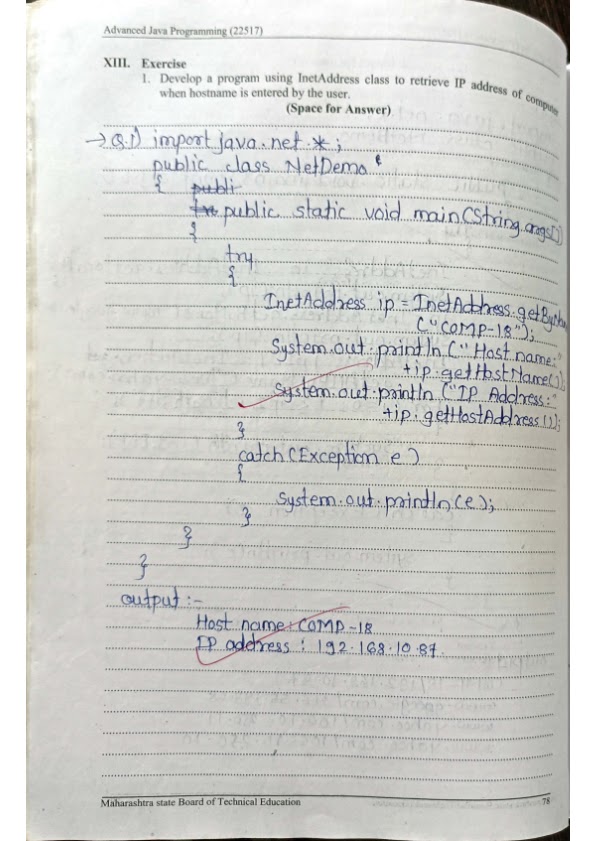 Advanced Java Programming (22517)
XIII. Exercise
1. Develop a program using InetAddress class to retrieve IP address of computer
when hostname is entered by the user.
(Space for Answer)
→ Q.1) import java.net.*;
public class NetDemo
{ publi
public static void main(String args[])
{
try
{
InetAddress ip = InetAddress.getByName
("COMP-18");
System.out.println ("Host name:"
+ip.getHostName());
System.out.println ("IP Address:"
+ip.getHostAddress());
}
catch(Exception e)
{
System.out.println(e);
}
}
}
output :-
Host name: COMP-18
IP address : 192.168.10.87.
Maharashtra state Board of Technical Education
78